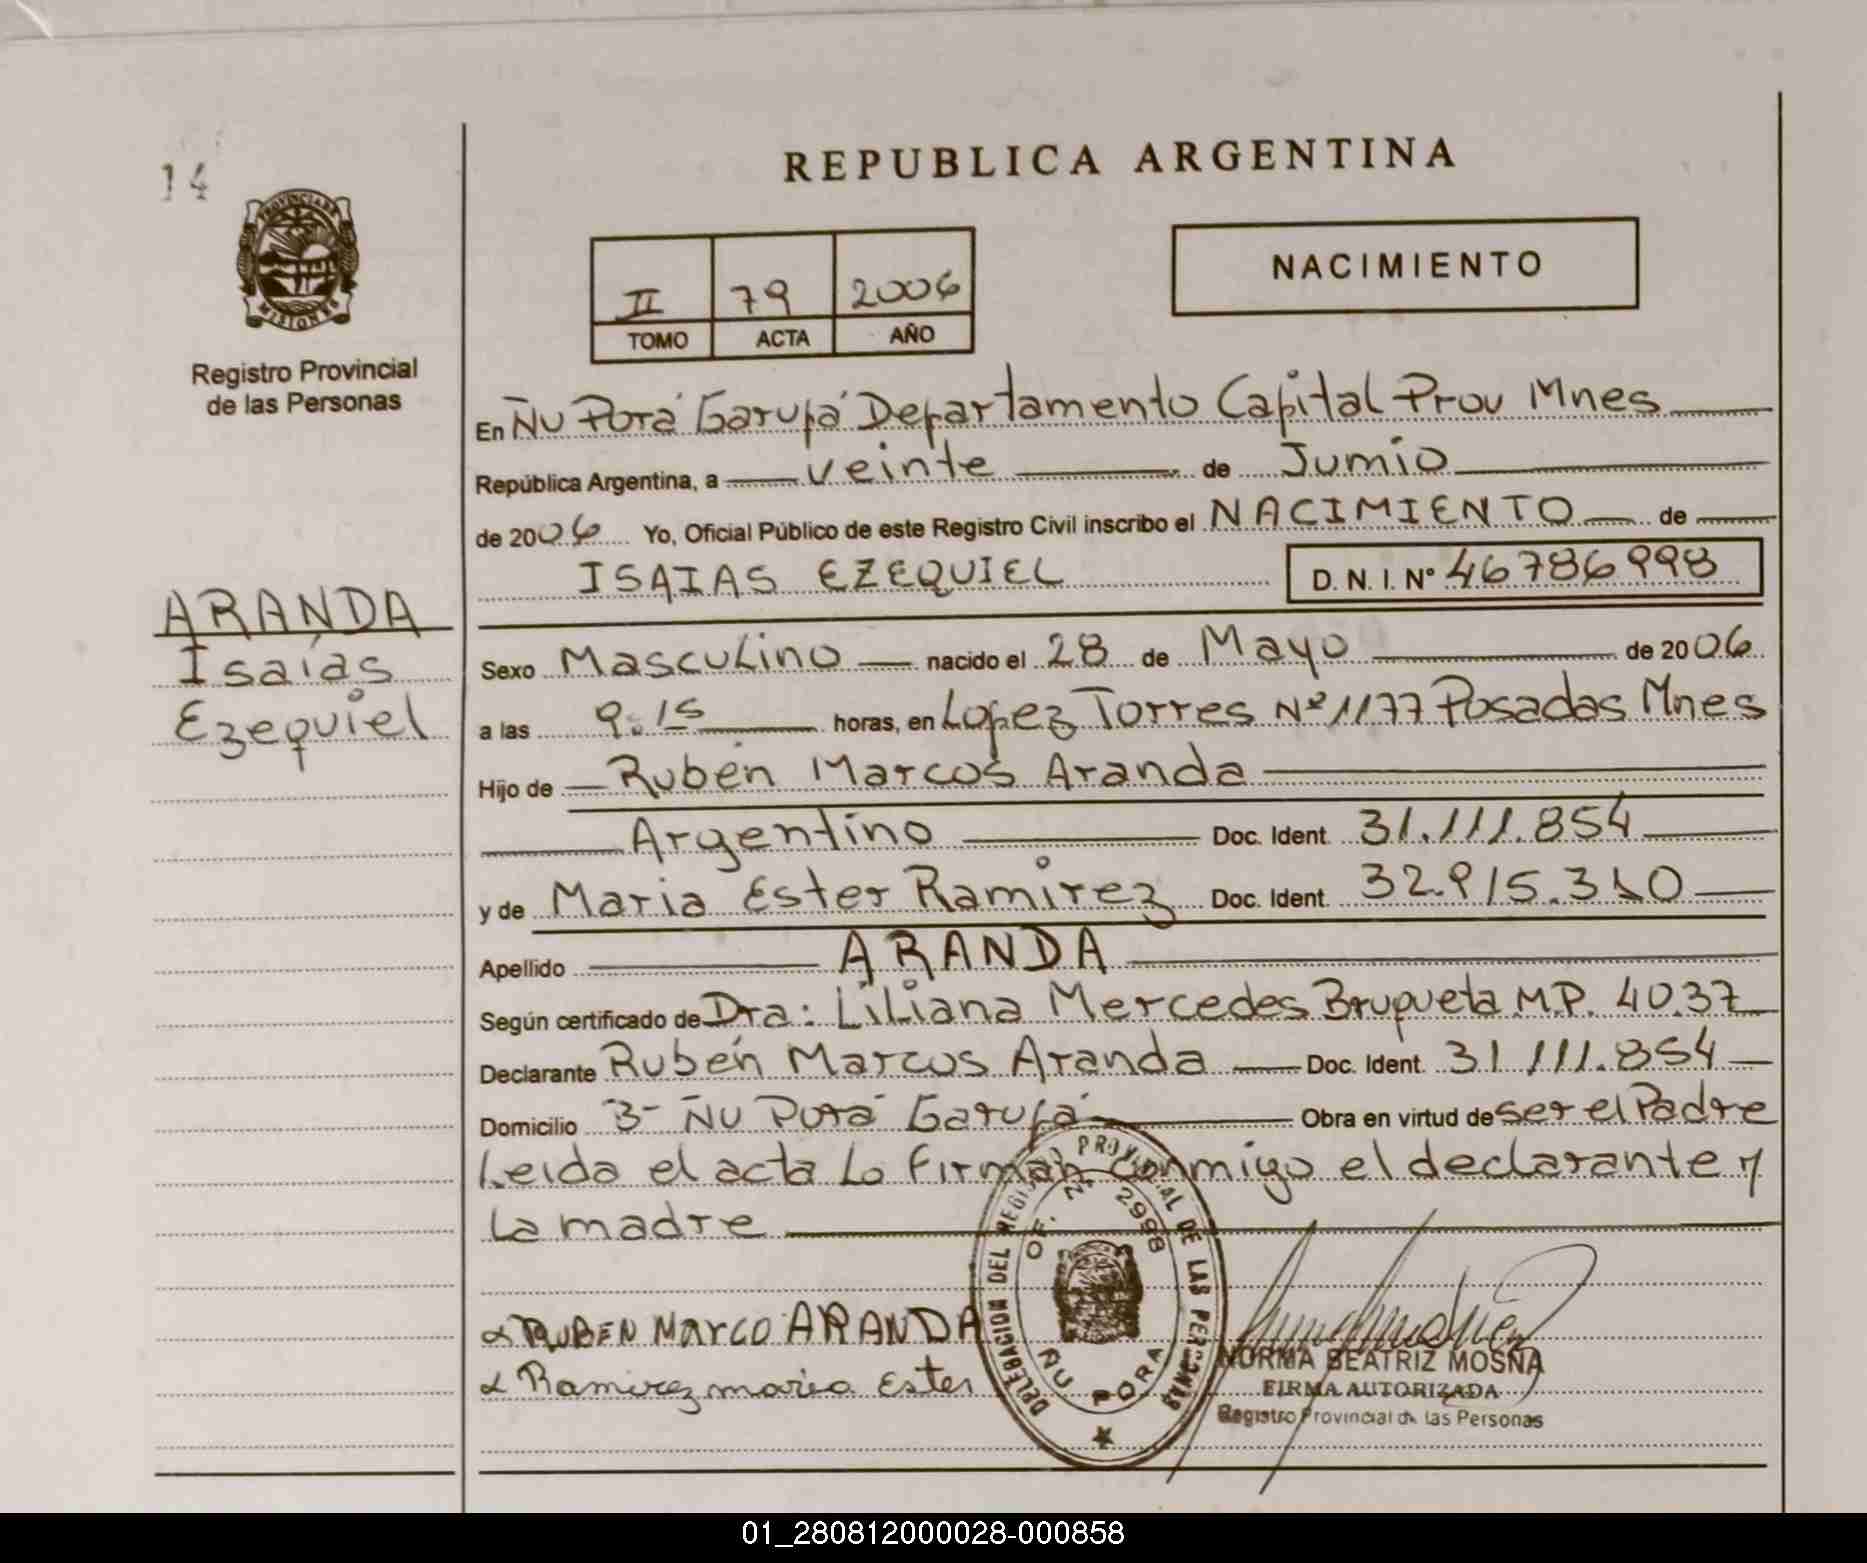 14
PROVINCIA DE
MISIONES
Registro Provincial
de las Personas
ARANDA
Isaías
Ezequiel
REPUBLICA ARGENTINA
II 79 2006
TOMO ACTA AÑO
NACIMIENTO
En Ñu Porá Garupá Departamento Capital Prov Mnes
República Argentina, a veinte de Junio
de 2006 Yo, Oficial Público de este Registro Civil inscribo el NACIMIENTO de
ISAIAS EZEQUIEL D.N.I. Nº 46786998
Sexo Masculino nacido el 28 de Mayo de 2006
a las 9:15 horas, en Lopez Torres Nº 1177 Posadas Mnes
Hijo de Rubén Marcos Aranda
Argentino Doc. Ident. 31.111.854
y de Maria Ester Ramirez Doc. Ident. 32.915.310
Apellido ARANDA
Según certificado de Dra: Liliana Mercedes Bruqueta M.P. 4037
Declarante Rubén Marcos Aranda Doc. Ident. 31.111.854
Domicilio B- Ñu Porá Garupá Obra en virtud de ser el Padre
Leida el acta lo firman conmigo el declarante y
la madre
RUBEN MARCO ARANDA
Ramirez maria Ester
DELEGACION DEL REGISTRO PROVINCIAL DE LAS PERSONAS
OF. Nº 2998
ÑU PORA
NORMA BEATRIZ MOSNA
FIRMA AUTORIZADA
Registro Provincial de las Personas
01_280812000028-000858